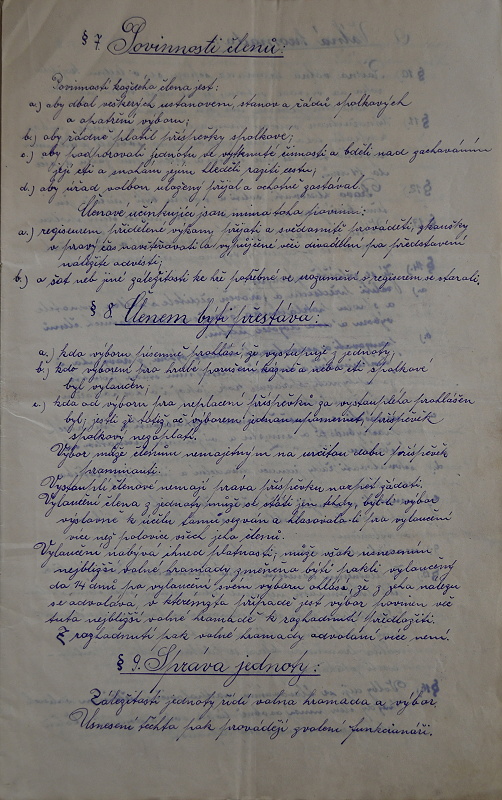 § 7. Povinnosti členů:
Povinností každého člena jest:
a.) aby dbal veškerých ustanovení, stanov a řádů spolkových
a opatření výboru;
b.) aby řádně platil příspěvky spolkové;
c.) aby podporovali jednotu ve vytknuté činnosti a bděli nad zachováním
její cti a snahám jejím hleděli raziti cestu;
d.) aby úřad volbou uložený přijal a ochotně zastával.
Členové účinkující jsou mimo toho povinni:
a.) régisseurem přidělené výkony přijati a svědomitě prováděti, zkoušky
v pravý čas navštěvovati a vypůjčené věci divadelní po představení
náležitě odvésti;
b.) o šat neb jiné záležitosti ke hře potřebné ve srozumění s regisérem se starati.
§ 8. Členem býti přestává:
a.) kdo výboru písemně prohlásí že vystupuje z jednoty;
b.) kdo výborem pro hrubé porušení kázně a nebo cti spolkové
byl vyloučen;
c.) kdo od výboru pro neplacení příspěvků za vystouplého prohlášen
byl; jestli že totiž, ač výborem jednou upomenut, příspěvek
spolkový nezaplatí.
Výbor může členům nemajetným na určitou dobu příspěvek
prominouti.
Vystouplí členové nemají práva příspěvku nazpět žádati.
Vyloučení člena z jednoty může se státi jen tehdy, byl-li výbor
výslovně k účelu tomu sezván a hlasovala-li pro vyloučení
více než polovice všech jeho členů.
Vyloučení nabývá ihned platnosti; může však usnesením
nejbližší valné hromady změněno býti pakli vyloučený
do 14 dnů po vyloučení svém výboru ohlásí, že z jeho nálezu
se odvolává, v kterémžto případě jest výbor povinen věc
tuto nejbližší valné hromadě k rozhodnutí předložiti.
Z rozhodnutí pak valné hromady odvolání více není.
§ 9. Správa jednoty:
Záležitosti jednoty řídí valná hromada a výbor.
Usnesení těchto pak provádějí zvolení funkcionáři.